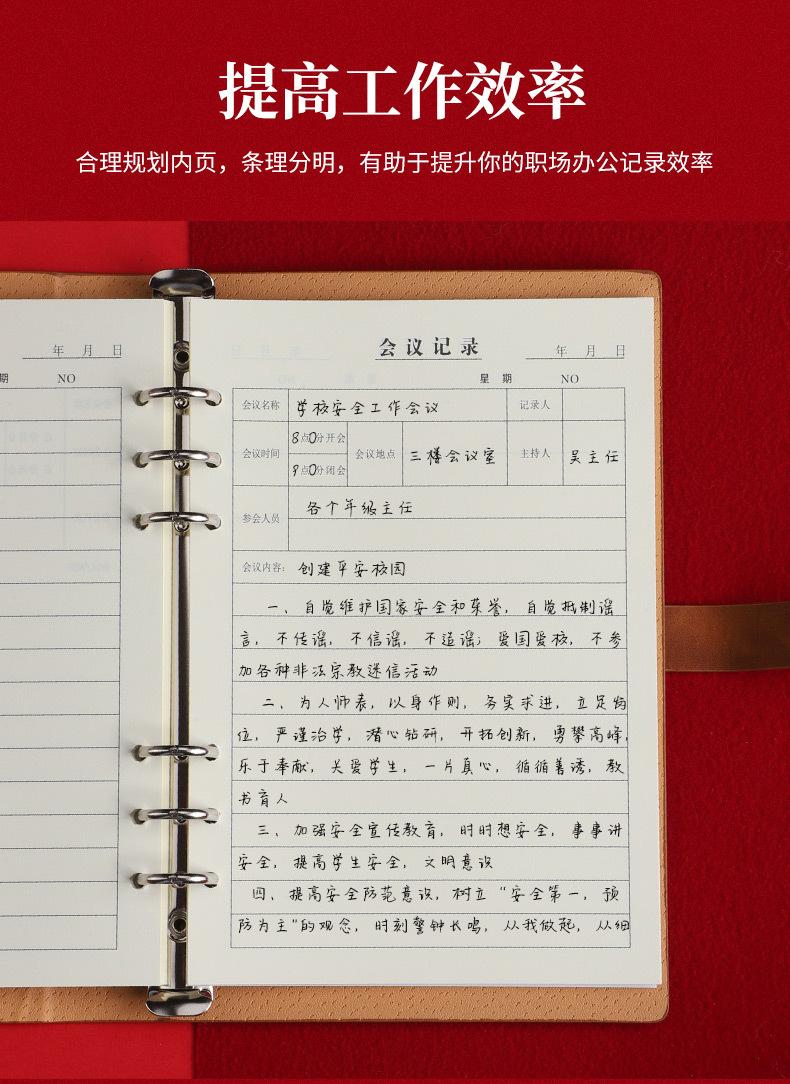 提高工作效率
合理规划内页，条理分明，有助于提升你的职场办公记录效率
年 月 日
期 NO
会议记录
年 月 日
星 期 NO
会议名称 学校安全工作会议 记录人
会议时间 8点0分开会 9点0分闭会 会议地点 三楼会议室 主持人 吴主任
参会人员 各个年级主任
会议内容：创建平安校园
一、自觉维护国家安全和荣誉，自觉抵制谣
言，不传谣，不信谣，不造谣；爱国爱校，不参
加各种非法宗教迷信活动
二、为人师表，以身作则，务实求进，立足岗
位，严谨治学，潜心钻研，开拓创新，勇攀高峰，
乐于奉献，关爱学生，一片真心，循循善诱，教
书育人
三、加强安全宣传教育，时时想安全，事事讲
安全，提高学生安全，文明意识
四、提高安全防范意识，树立“安全第一，预
防为主”的观念，时刻警钟长鸣，从我做起，从细